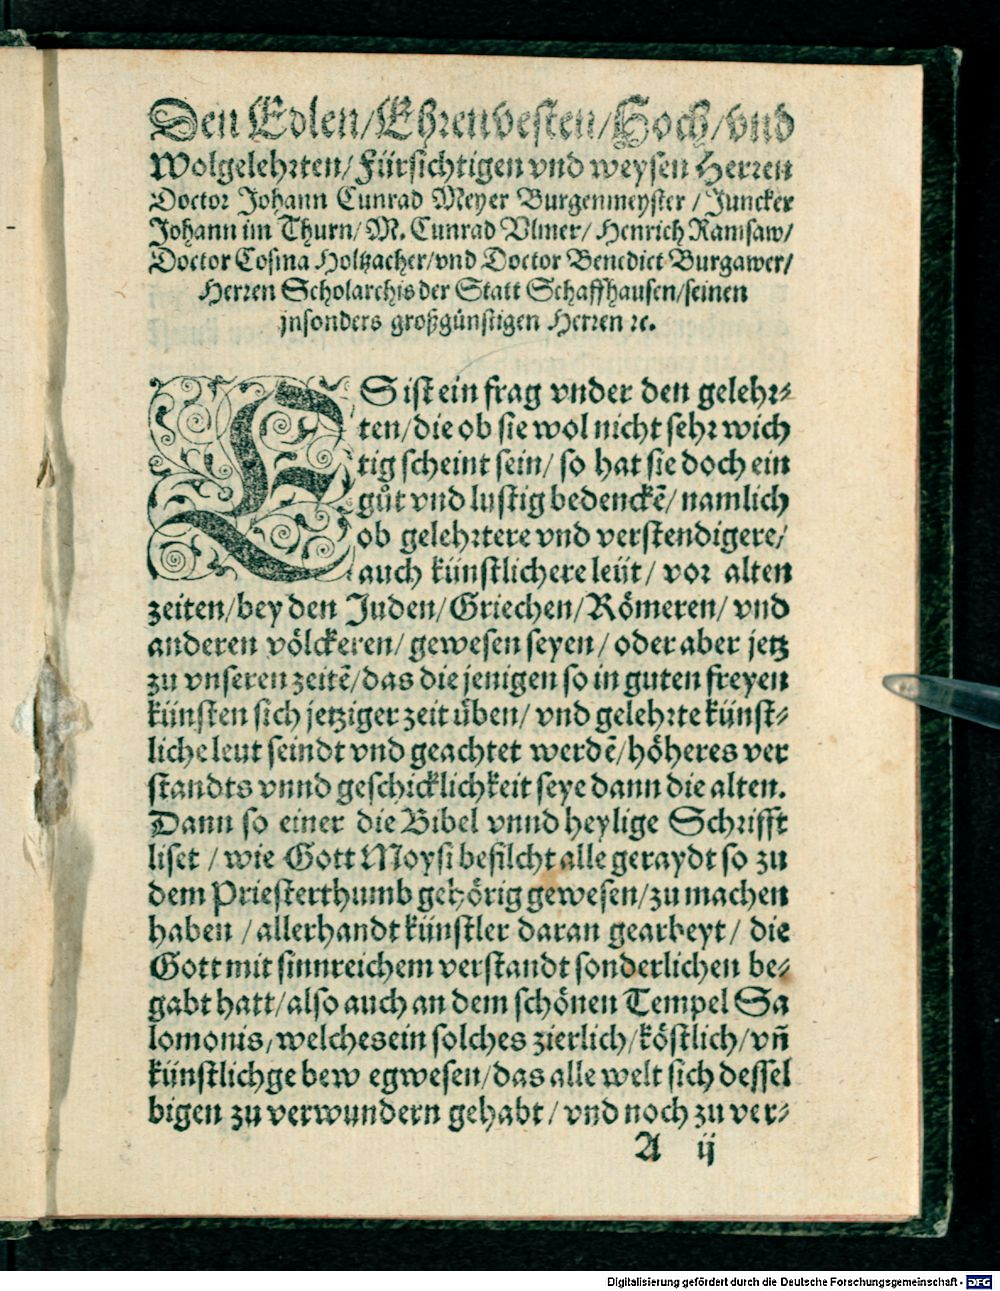 Den Edlen/Ehrenvesten/Hoch/vnd
Wolgelehrten/Fürsichtigen vnd weysen Herren
Doctor Johann Cunrad Meyer Burgenmeyster/Juncker
Johann im Thurn/M. Cunrad Vlmer/Henrich Ramsaw/
Doctor Cosma Holtzacher/vnd Doctor Benedict Burgawer/
Herren Scholarchis der Statt Schaffhausen/seinen
jnsonders großgünstigen Herren ꝛc.
ES ist ein frag vnder den gelehr⸗
ten/die ob sie wol nicht sehr wich
tig scheint sein/so hat sie doch ein
gůt vnd lustig bedenckẽ/namlich
ob gelehrtere vnd verstendigere/
auch künstlichere leüt/vor alten
zeiten/bey den Juden/Griechen/Römeren/vnd
anderen völckeren/gewesen seyen/oder aber jetz
zu vnseren zeitẽ/das die jenigen so in guten freyen
künsten sich jetziger zeit üben/vnd gelehrte künst⸗
liche leut seindt vnd geachtet werdẽ/höheres ver
standts vnnd geschicklichkeit seye dann die alten.
Dann so einer die Bibel vnnd heylige Schrifft
liset/wie Gott Moysi befilcht alle geraydt so zu
dem Priesterthumb gehörig gewesen/zu machen
haben/allerhandt künstler daran gearbeyt/die
Gott mit sinnreichem verstandt sonderlichen be⸗
gabt hatt/also auch an dem schönen Tempel Sa
lomonis/welches ein solches zierlich/köstlich/vñ
künstlich ge bew egwesen/das alle welt sich dessel
bigen zu verwundern gehabt/vnd noch zu ver⸗
A ij
Digitalisierung gefördert durch die Deutsche Forschungsgemeinschaft - DFG